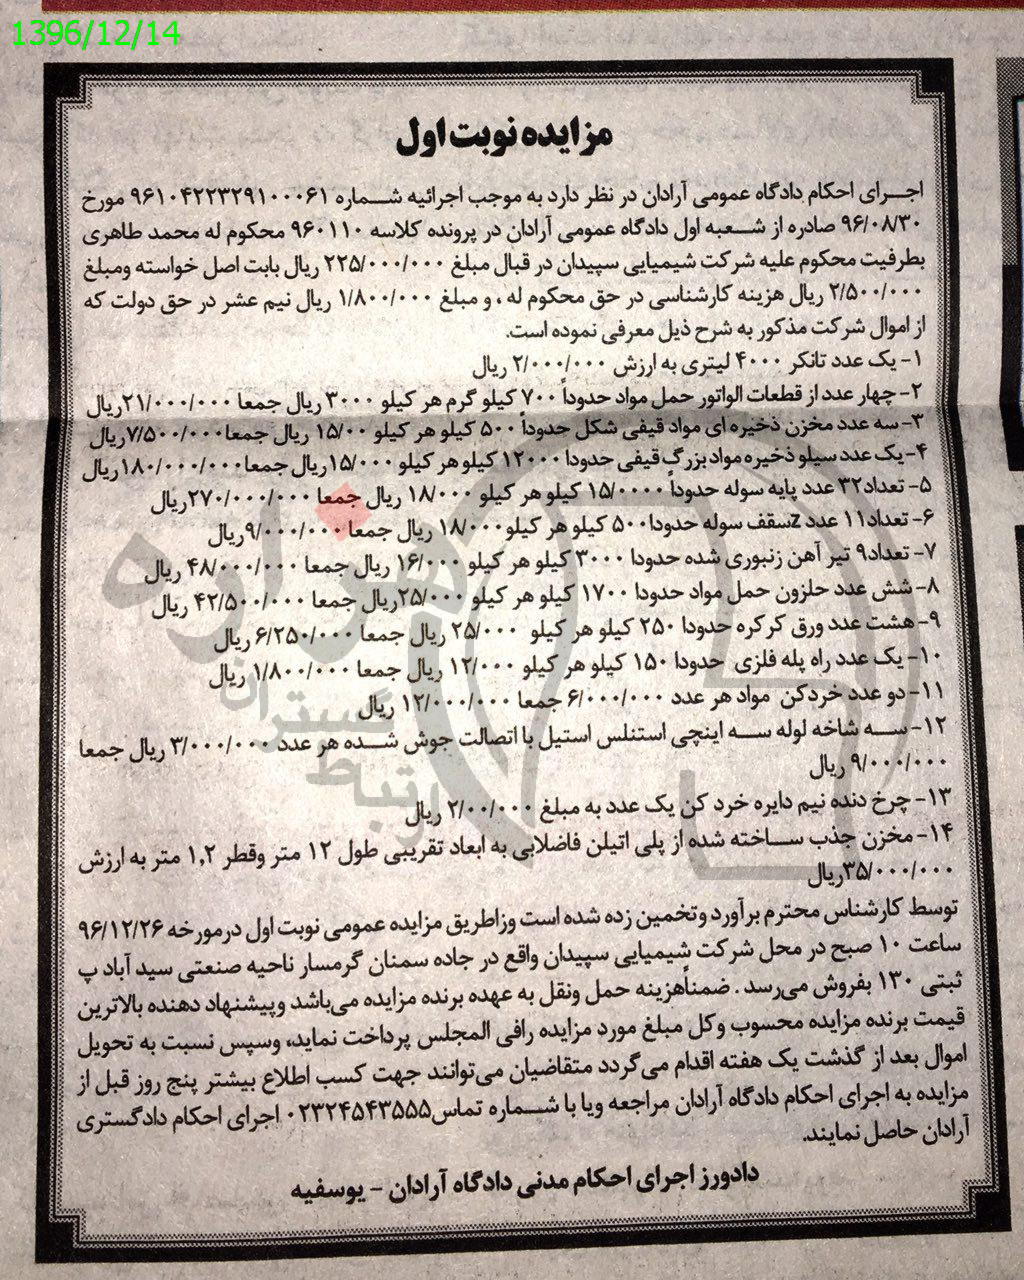 1396/12/14
مزایده نوبت اول
اجرای احکام دادگاه عمومی آرادان در نظر دارد به موجب اجرائیه شماره ۹۶۱۰۴۲۲۳۲۹۱۰۰۰۶۱ مورخ
۹۶/۰۸/۳۰ صادره از شعبه اول دادگاه عمومی آرادان در پرونده کلاسه ۹۶۰۱۱۰ محکوم له محمد طاهری
بطرفیت محکوم علیه شرکت شیمیایی سپیدان در قبال مبلغ ۲۲۵/۰۰۰/۰۰۰ ریال بابت اصل خواسته ومبلغ
۲/۵۰۰/۰۰۰ ریال هزینه کارشناسی در حق محکوم له ، و مبلغ ۱/۸۰۰/۰۰۰ ریال نیم عشر در حق دولت که
از اموال شرکت مذکور به شرح ذیل معرفی نموده است.
۱- یک عدد تانکر ۴۰۰۰ لیتری به ارزش ۲/۰۰۰/۰۰۰ ریال
۲- چهار عدد از قطعات الواتور حمل مواد حدوداً ۷۰۰ کیلو گرم هر کیلو ۳۰۰۰ ریال جمعا ۲۱/۰۰۰/۰۰۰ریال
۳- سه عدد مخزن ذخیره ای مواد قیفی شکل حدوداً ۵۰۰ کیلو هر کیلو ۱۵/۰۰ ریال جمعا۷/۵۰۰/۰۰۰ریال
۴- یک عدد سیلو ذخیره مواد بزرگ قیفی حدودا ۱۲۰۰۰ کیلو هر کیلو ۱۵/۰۰۰ریال جمعا۱۸۰/۰۰۰/۰۰۰ریال
۵- تعداد۳۲ عدد پایه سوله حدوداً ۱۵/۰۰۰۰ کیلو هر کیلو ۱۸/۰۰۰ ریال جمعا ۲۷۰/۰۰۰/۰۰۰ریال
۶- تعداد۱۱ عدد zسقف سوله حدودا۵۰۰ کیلو هر کیلو۱۸/۰۰۰ ریال جمعا ۹/۰۰۰/۰۰۰ریال
۷- تعداد۹ تیر آهن زنبوری شده حدودا ۳۰۰۰ کیلو هر کیلو ۱۶/۰۰۰ ریال جمعا ۴۸/۰۰۰/۰۰۰ ریال
۸- شش عدد حلزون حمل مواد حدودا ۱۷۰۰ کیلو هر کیلو ۲۵/۰۰۰ریال جمعا ۴۲/۵۰۰/۰۰۰ ریال
۹- هشت عدد ورق کرکره حدودا ۲۵۰ کیلو هر کیلو ۲۵/۰۰۰ ریال جمعا ۶/۲۵۰/۰۰۰ ریال
۱۰- یک عدد راه پله فلزی حدودا ۱۵۰ کیلو هر کیلو ۱۲/۰۰۰ ریال جمعا ۱/۸۰۰/۰۰۰ ریال
۱۱- دو عدد خردکن مواد هر عدد ۶/۰۰۰/۰۰۰ جمعا ۱۲/۰۰۰/۰۰۰ ریال
۱۲- سه شاخه لوله سه اینچی استنلس استیل با اتصالت جوش شده هر عدد ۳/۰۰۰/۰۰۰ ریال جمعا
۹/۰۰۰/۰۰۰ ریال
۱۳- چرخ دنده نیم دایره خرد کن یک عدد به مبلغ ۲/۰۰/۰۰۰ ریال
۱۴- مخزن جذب ساخته شده از پلی اتیلن فاضلابی به ابعاد تقریبی طول ۱۲ متر وقطر ۱,۲ متر به ارزش
۳۵/۰۰۰/۰۰۰ریال
توسط کارشناس محترم برآورد وتخمین زده شده است وزاطریق مزایده عمومی نوبت اول درمورخه ۹۶/۱۲/۲۶
ساعت ۱۰ صبح در محل شرکت شیمیایی سپیدان واقع در جاده سمنان گرمسار ناحیه صنعتی سید آباد پ
ثبتی ۱۳۰ بفروش می‌رسد . ضمناًهزینه حمل ونقل به عهده برنده مزایده می‌باشد وپیشنهاد دهنده بالاترین
قیمت برنده مزایده محسوب وکل مبلغ مورد مزایده رافی المجلس پرداخت نماید، وسپس نسبت به تحویل
اموال بعد از گذشت یک هفته اقدام می‌گردد متقاضیان می‌توانند جهت کسب اطلاع بیشتر پنج روز قبل از
مزایده به اجرای احکام دادگاه آرادان مراجعه ویا با شماره تماس۰۲۳۲۴۵۴۳۵۵۵ اجرای احکام دادگستری
آرادان حاصل نمایند.
دادورز اجرای احکام مدنی دادگاه آرادان - یوسفیه
هزاره
گستران
ارتباط